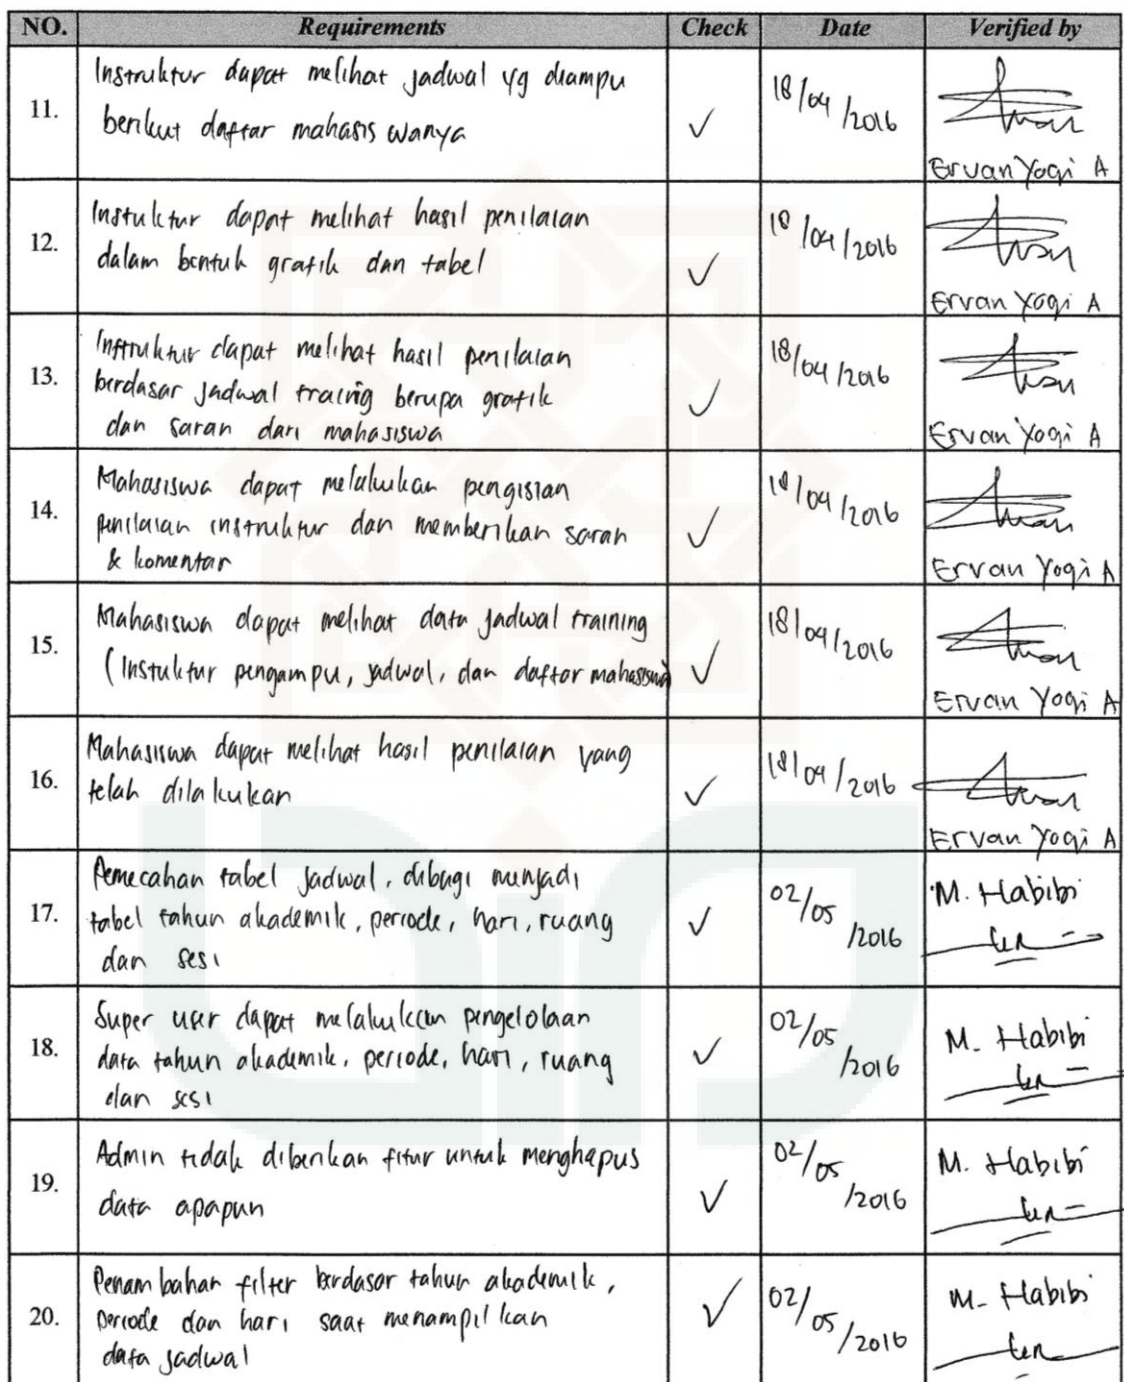 NO. Requirements Check Date Verified by
11. Instruktur dapat melihat jadwal yg diampu
berikut daftar mahasiswanya ✓ 18/04/2016
Ervan Yogi A
12. Instuktur dapat melihat hasil penilaian
dalam bentuk grafik dan tabel ✓ 18/04/2016
Ervan Yogi A
13. Instruktur dapat melihat hasil penilaian
berdasar jadwal traing berupa grafik
dan saran dari mahasiswa ✓ 18/04/2016
Ervan Yogi A
14. Mahasiswa dapat melakukan pengisian
penilaian instruktur dan memberikan saran
& komentar ✓ 18/04/2016
Ervan Yogi A
15. Mahasiswa dapat melihat data jadwal training
(Instuktur pengampu, jadwal, dan daftar mahasiswa) ✓ 18/04/2016
Ervan Yogi A
16. Mahasiswa dapat melihat hasil penilaian yang
telah dilakukan ✓ 18/04/2016
Ervan Yogi A
17. Pemecahan tabel jadwal, dibagi menjadi
tabel tahun akademik, periode, hari, ruang
dan sesi ✓ 02/05/2016
M. Habibi
18. Super user dapat melakukan pengelolaan
data tahun akademik, periode, hari, ruang
dan sesi ✓ 02/05/2016
M. Habibi
19. Admin tidak diberikan fitur untuk menghapus
data apapun ✓ 02/05/2016
M. Habibi
20. Penambahan filter berdasar tahun akademik,
periode dan hari saat menampilkan
data jadwal ✓ 02/05/2016
M. Habibi